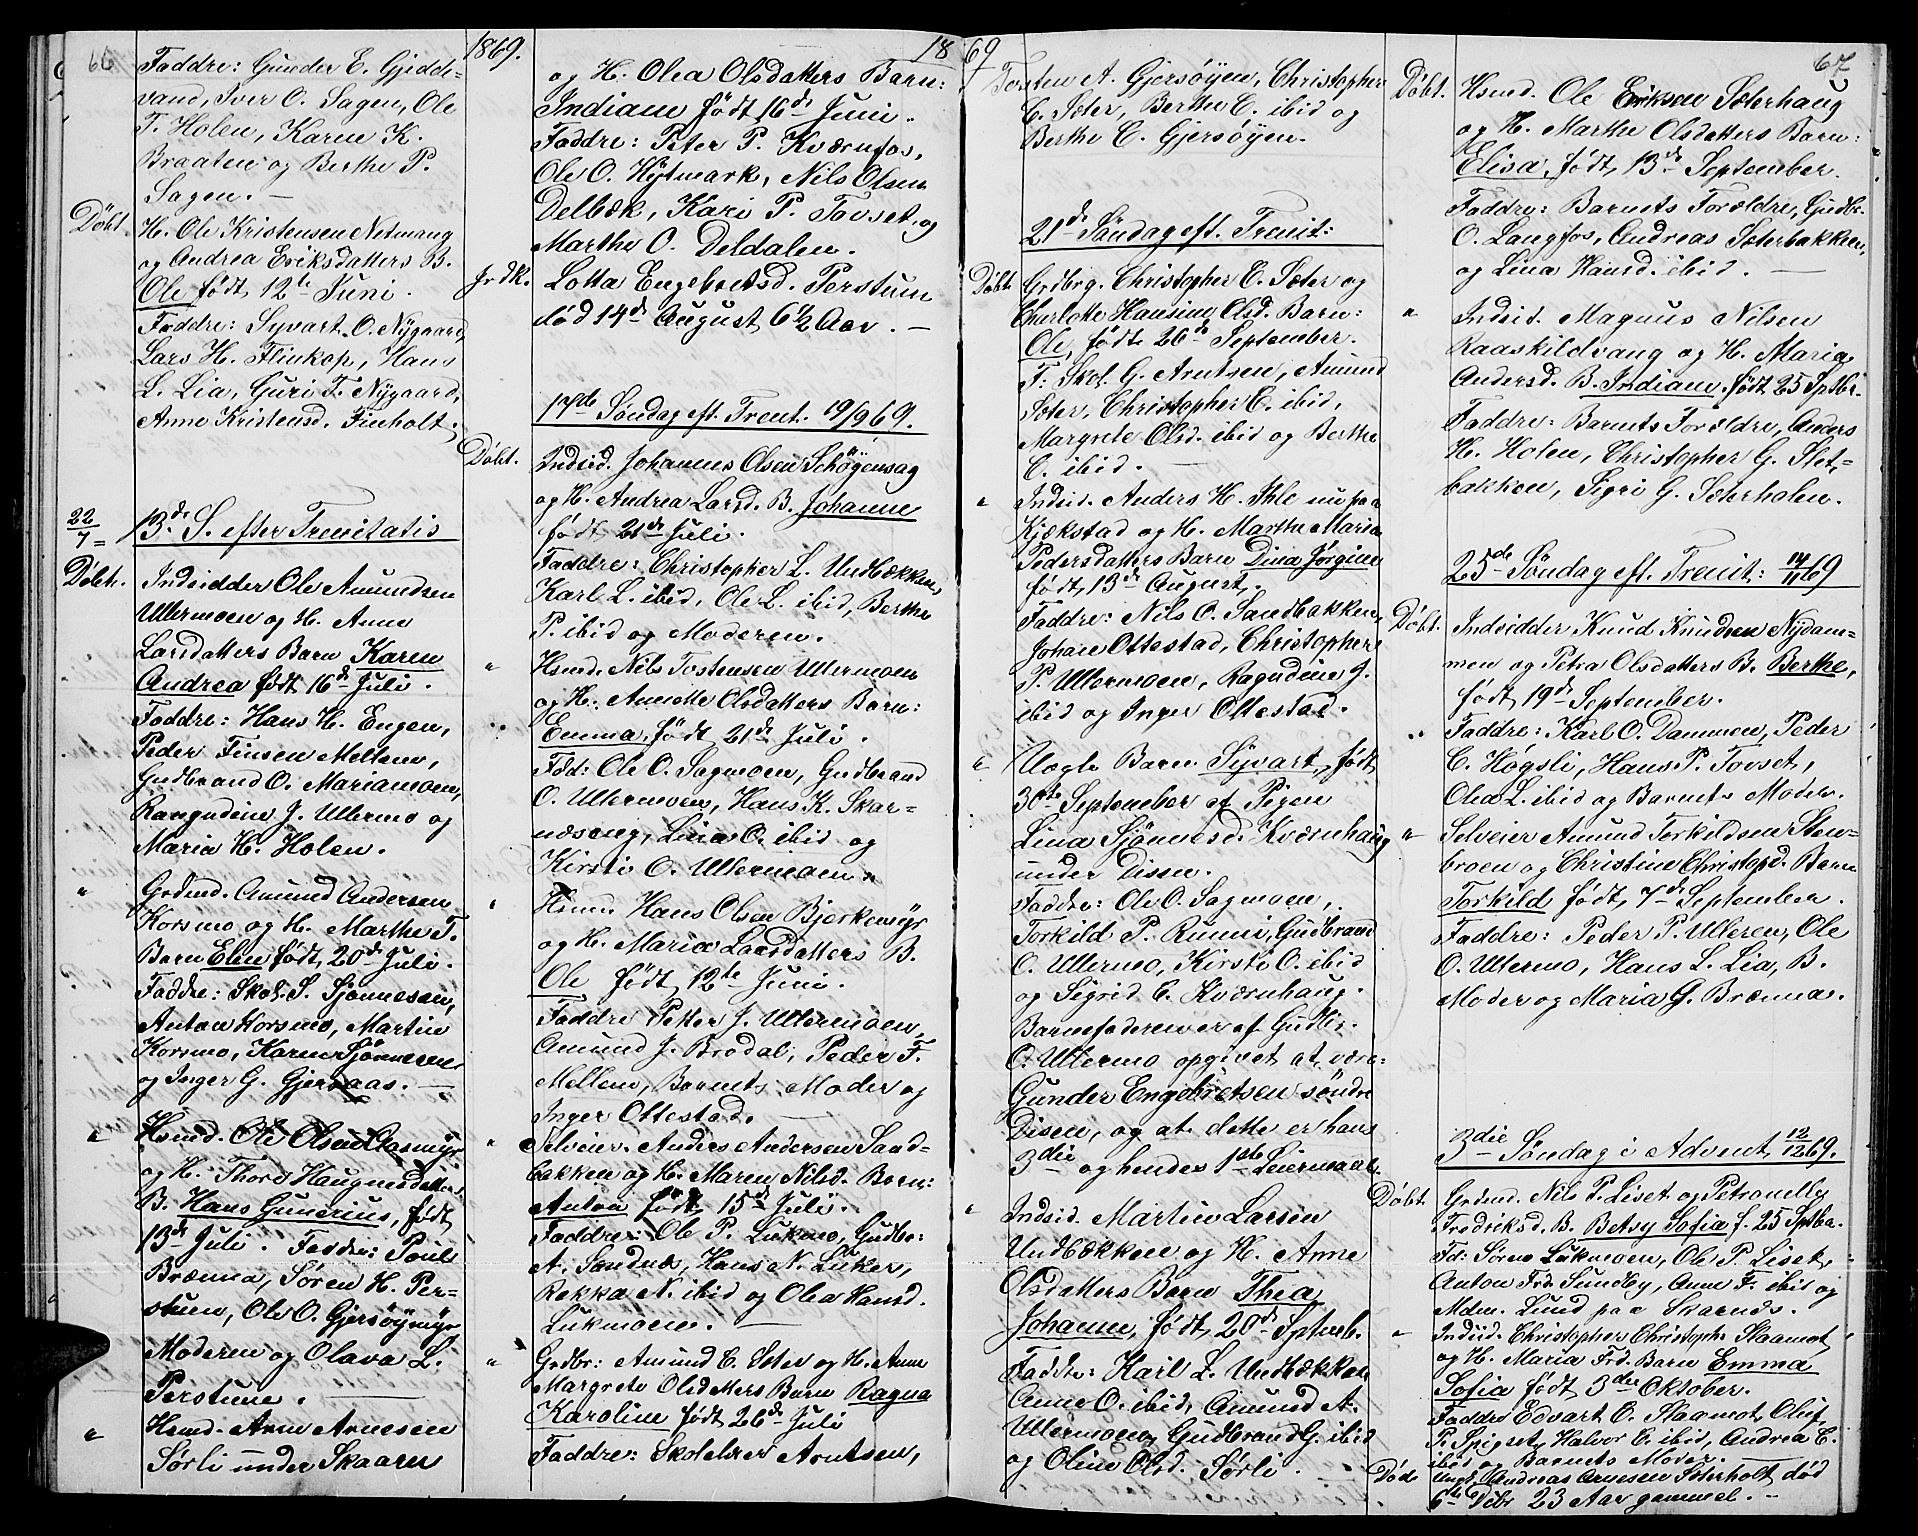 66
1869.
Faddre: Gunder E. Gjidde-
vand, Iver O. Sagen, Ole
T. Holen, Karen K.
Braaten og Berthe P.
Sagen. —
Döbt. H. Ole Kristensen Netmang
og Andrea Eriksdatters B.
Ole født 12te Juni.
Faddre: Syvart O. Nygaard,
Lars H. Flinkop, Hans
L. Lia, Guri T. Nygaard,
Anne Kristensd. Finholt.
22/7 = 13de S. efter Trenitatis
Döbt. Indsidder Ole Amundsen
Ullermoen og H. Anne
Larsdatters Barn Karen
Andrea født 16de Juli.
Faddre: Hans H. Engen,
Peder Finsen Mellem,
Gudbrand O. Mariamoen,
Rangndine J. Ullermo og
Maria H. Holen.
" Grdmd. Amund Andersen
Korsmo og H. Marthe T.
Barn Elen født 20de Juli.
Faddre: Skol. S. Sjönnesen,
Anton Korsmo, Martin
Korsmo, Karen Sjönnesen
og Inger G. Gjersaas. —
" Hsmd. Ole Olsen Aasmyr
og H. Thora Haagensdatters
B. Hans Gunerius, født
13de Juli. Faddre: Poul
Brænna, Søren H. Per-
stuen, Ole O. Gjersöymyr
Moderen og Olava L.
Perstuen.
" Hsmd. Arne Arnesen
Sørli under Skaaren
og H. Olea Olsdatters Barn:
Indiane født 16de Juni.
Faddre: Peter P. Kværnfos,
Ole O. Hytmark, Nils Olsen
Delbæk, Kari P. Tovset og
Marthe O. Deldalen.
Jrdk. Lotta Engebretsd. Perstuen
död 14de August 6½ Aar. —
17de Søndag eft. Trenit. 19/9 69.
Döbt. Indsid. Johannes Olsen Schöyensag
og H. Andrea Larsd. B. Johanne
født 21de Juli.
Faddre: Christopher L. Undbækken,
Karl L. ibid, Ole L. ibid, Berthe
P. ibid og Moderen.
" Hsmd. Nils Tostensen Ullermoen
og H. Annette Olsdatters Barn:
Emma, født 21de Juli.
Fdd: Ole O. Sagmoen, Gudbrand
O. Ullermoen, Hans K. Skar-
næseng, Lina O. ibid og
Kirsti O. Ullermoen.
" Hsmd. Hans Olsen Bjerkemyr
og H. Maria Larsdatters B.
Ole født 12te Juni.
Faddre Peter J. Ullermoen,
Amund J. Brodal, Peder F.
Mellem, Barnets Moder og
Inger Ottestad. —
" Selveier Anders Andersen Sand-
bakken og H. Maren Nilsd. Barn:
Anton født 15de Juli.
Faddre: Ole P. Lukmo, Gudbr.
A. Sandnæs, Hans N. Luker,
Rekka N. ibid og Olea Hansd.
Lukmoen. —
" Grdbr: Amund C. Seter og H. Anne
Margrete Olsdatters Barn Ragna
Karoline født 26de Juli
Faddre: Skolelrer Arntsen,
1869
67
Torsten A. Gjersöyen, Christopher
C. Seter, Berthe C. ibid og
Berthe C. Gjersöyen.
21de Søndag eft. Trenit:
Döbt Grdbrg. Christopher C. Sæter og
Charlotte Hansine Olsd. Barn:
Ole, født 26de September.
F: Skol. G. Arntsen, Amund
Sæter, Christopher C. ibid,
Margrete Olsd. ibid og Berthe
C. ibid. —
" Indsid. Anders H. Ihle nu paa
Kjækstad og H. Marthe Maria
Pedersdatters Barn Dina Jörgine
født 13de August.
Faddre: Nils O. Sandbakken,
Johan Ottestad, Christopher
P. Ullermoen, Ragndine J.
ibid og Inger Ottestad.
" Uægte Barn Syvart, født
30te September af Pigen
Lina Sjönnesd. Kværnhaug
under Dissen.
Faddre: Ole O. Sagmoen,
Torkild P. Runni, Gudbrand
O. Ullermo, Kirsti O. ibid
og Sigrid C. Kværnhaug.
Barnefaderen er af Gudbr.
O. Ullermo opgivet at være
Gunder Engebretsen söndre
Disen, og at dette er hans
3die og hendes 1ste Leiermaal.
" Indsid. Martin Larsen
Undbækken og H. Anne
Olsdatters Barn Thea
Johanne, født 20de Septemb.
Faddre: Karl L. Undbækken
Anne O. ibid, Amund A.
Ullermoen, Gudbrand G. ibid
og Oline Olsd. Sørli. —
Döbt. Hsmd. Ole Eriksen Sæterhaug
og H. Marthe Olsdatters Barn:
Elisa, født 13de September.
Faddre: Barnets Forældre, Gudbr.
O. Langfos, Andreas Sæterbakken,
og Lina Hansd. ibid. —
" Indsid. Magnus Nilsen
Raaskildvang og H. Maria
Andersd. B. Indiane, født 25 Sptbr.
Faddre: Barnets Forældre, Anders
H. Holen, Christopher G. Slet-
bakken, Sigri G. Sæterholen.
25de Søndag eft. Trenit: 14/11 69
Döbt. Indsidder Knud Knudsen Nydam-
men og Petra Olsdatters B. Berthe,
født 19de September.
" Faddre: Karl O. Dammen, Peder
C. Høgsli, Hans P. Tovset,
Olea L. ibid og Barnets Moder.
" Selveier Amund Torkildsen Sten-
broen og Christine Christopd. Barn
Torkild født 7de September.
Faddre: Peder P. Ulleren, Ole
O. Ullermo, Hans L. Lia, B.
Moder og Maria G. Brænna.
3die Søndag i Advent 12/12 69.
Döbt. Grdmd. Nils P. Liset og Petronelly
Fredriksd. B. Betsy Sofia f. 25 Sptbr.
Fd: Sørine Lukmoen, Ole P. Liset,
Anton Frd. Sundby, Anne F. ibid og
Mdm. Lund paa Skarnds.
" Indsid. Christopher Christophs. Slaamot
og H. Maria Frd. Barn Emma
Sofia født 3die Oktober.
Faddre Edvart C. Slaamot, Oluf
P. Spigset, Halvor C. ibid, Andrea C.
ibid og Barnets Moder.
Döde Ungk. Andreas Arnesen Sæterholt, död
6te Debr 23 Aar gammel. —